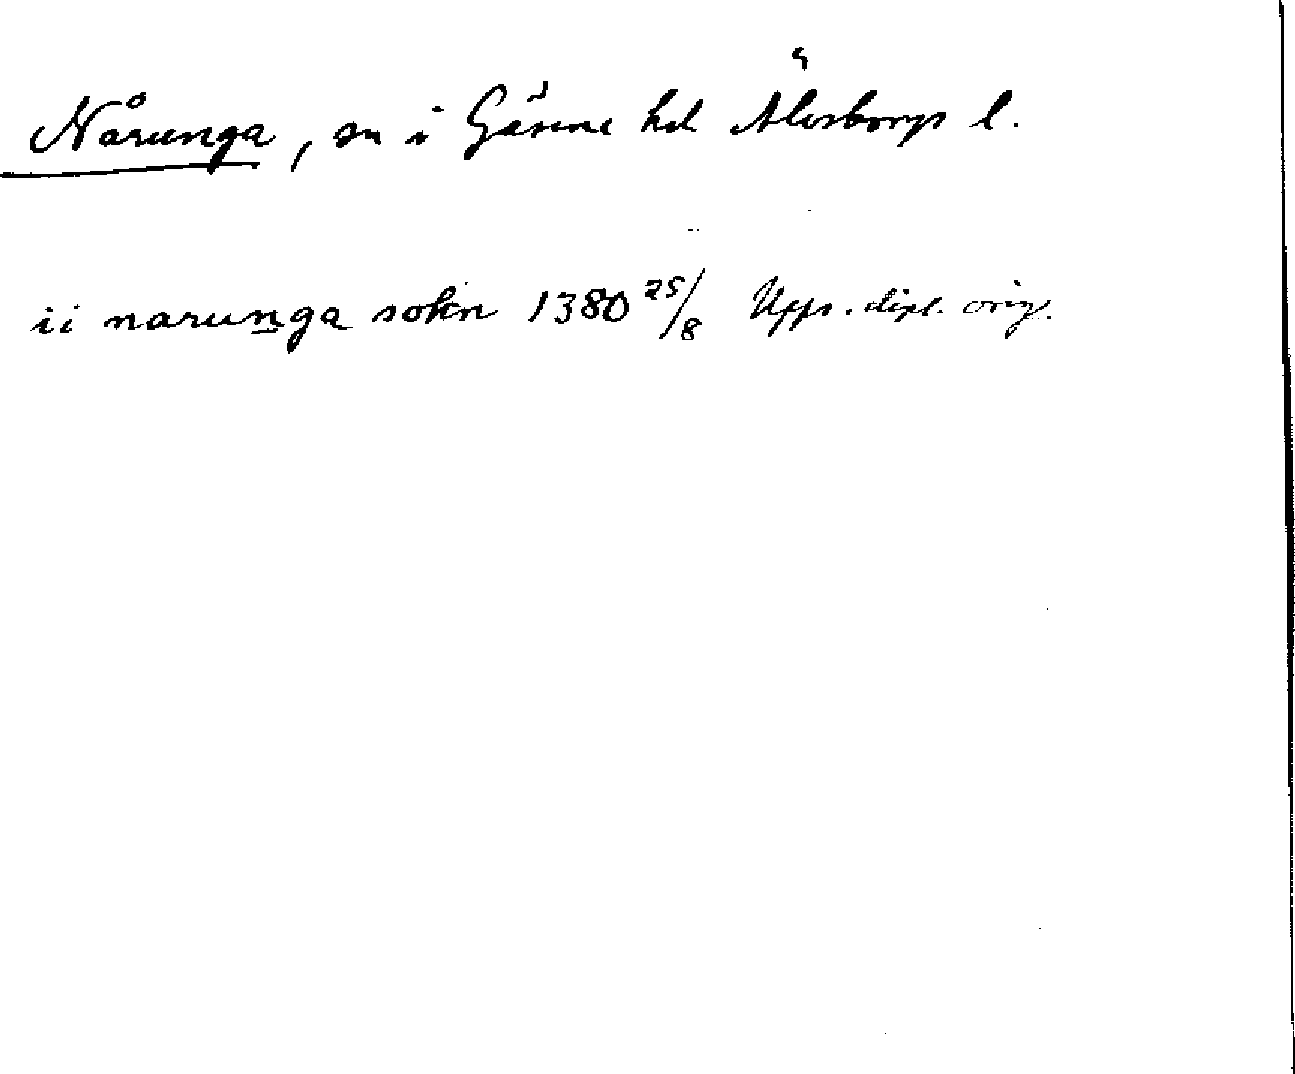 Nårunga, sn i Gäsene hd Älvsborgs l.
ii narunga sokn 1380 25/8 Upps. dipl. orig.